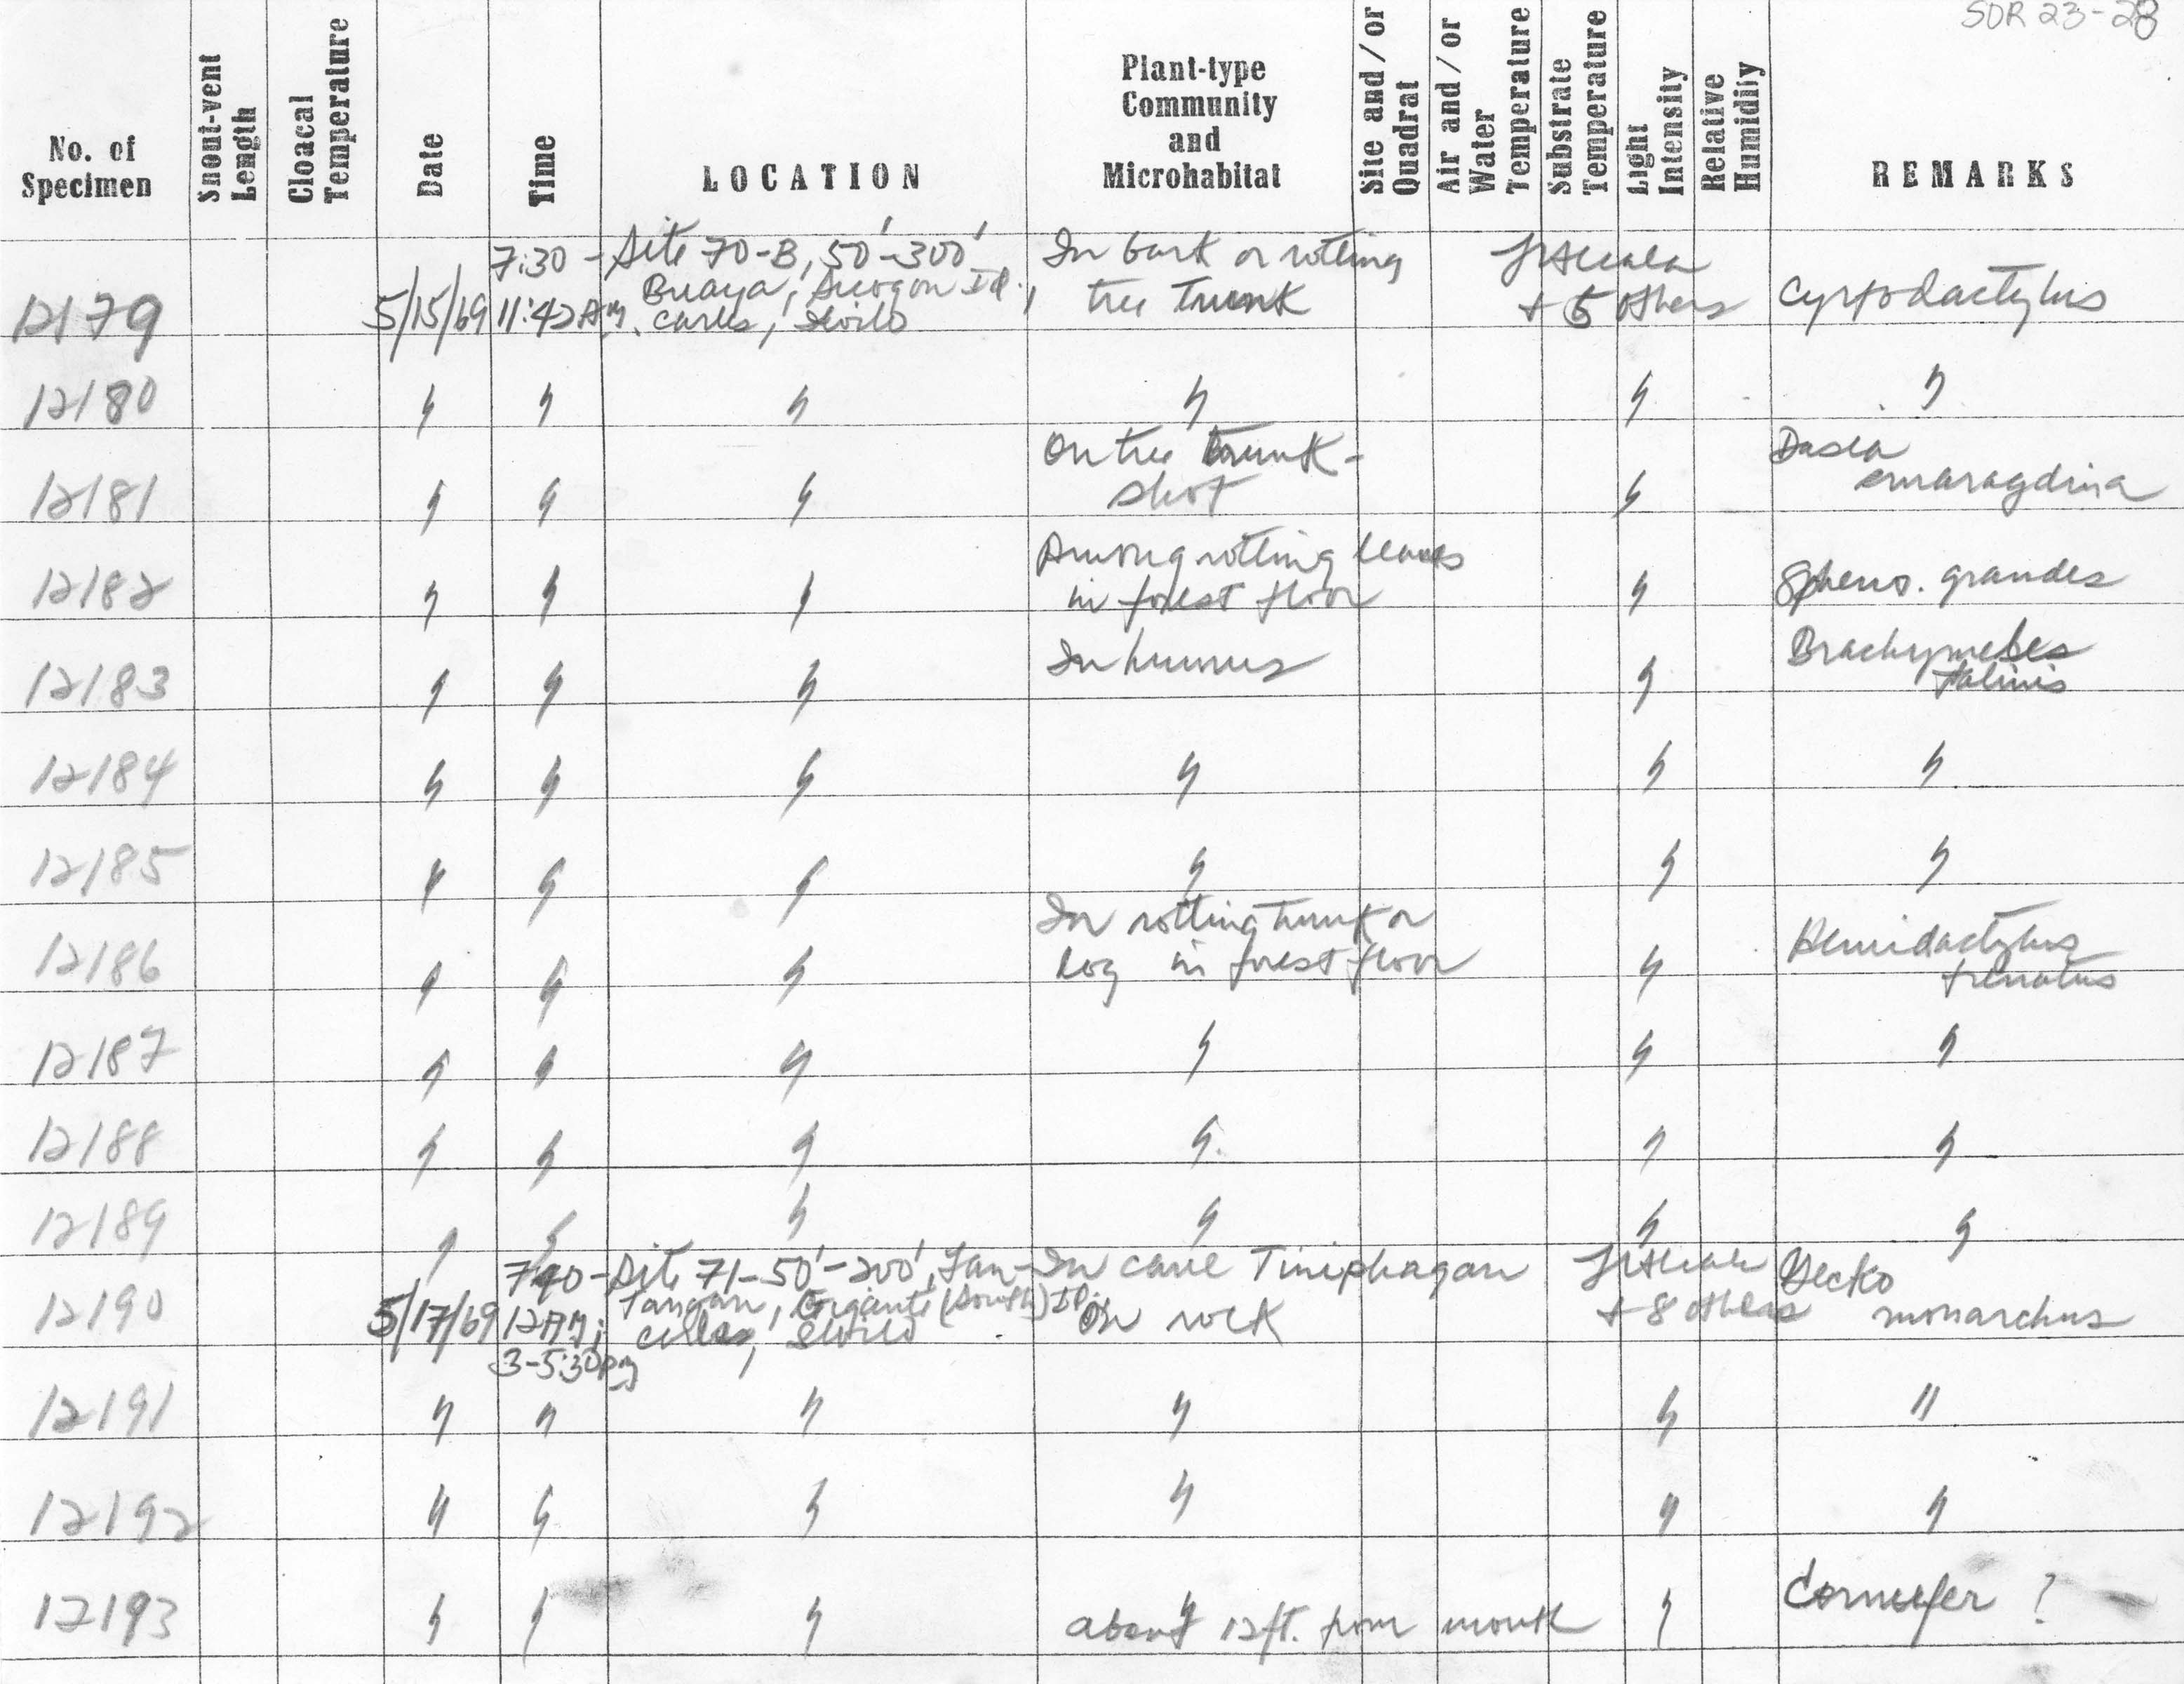 SDR 23-28
No. of Specimen
Snout-vent Length
Cloacal Temperature
Date
Time
LOCATION
Plant-type Community and Microhabitat
Site and/or Quadrat
Air and/or Water Temperature
Substrate Temperature
Light Intensity
Relative Humidity
REMARKS
12179 5/15/69 7:30 - 11:42 AM Site 70-B, 50'-300' Buaya, Sicogon Id., Carles, Iloilo In bark or rotting tree trunk + 5 others Cyrtodactylus
12180 " " " " " "
12181 " " " On tree trunk - shot " Dasia smaragdina
12182 " " " Among rotting leaves in forest floor " Spheno. grandes
12183 " " " In humus " Brachymeles talinis
12184 " " " " " "
12185 " " " " " "
12186 " " " In rotting trunk or log in forest floor " Hemidactylus frenatus
12187 " " " " " "
12188 " " " " " "
12189 " " " " " "
12190 5/17/69 12 AM; 3-5:30 PM Site 71-50'-200', Gigante (South) Id. Iloilo In cave Tiniphagan on rock + 8 others Gecko monarchus
12191 " " " " " "
12192 " " " " " "
12193 " " " " about 12 ft. from mouth " Cornufer ?